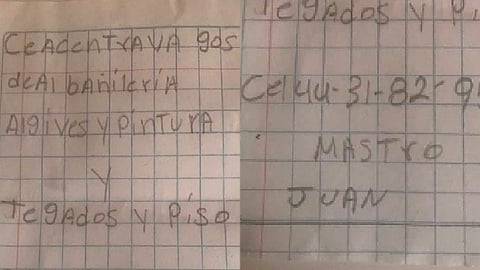 CeAcentrAVA gos
deAl bañilería
Algives y pinturA
y
Tegados y piso
Tegados y Pi
Cel 44-31-82-9
MASTrO
JUAN